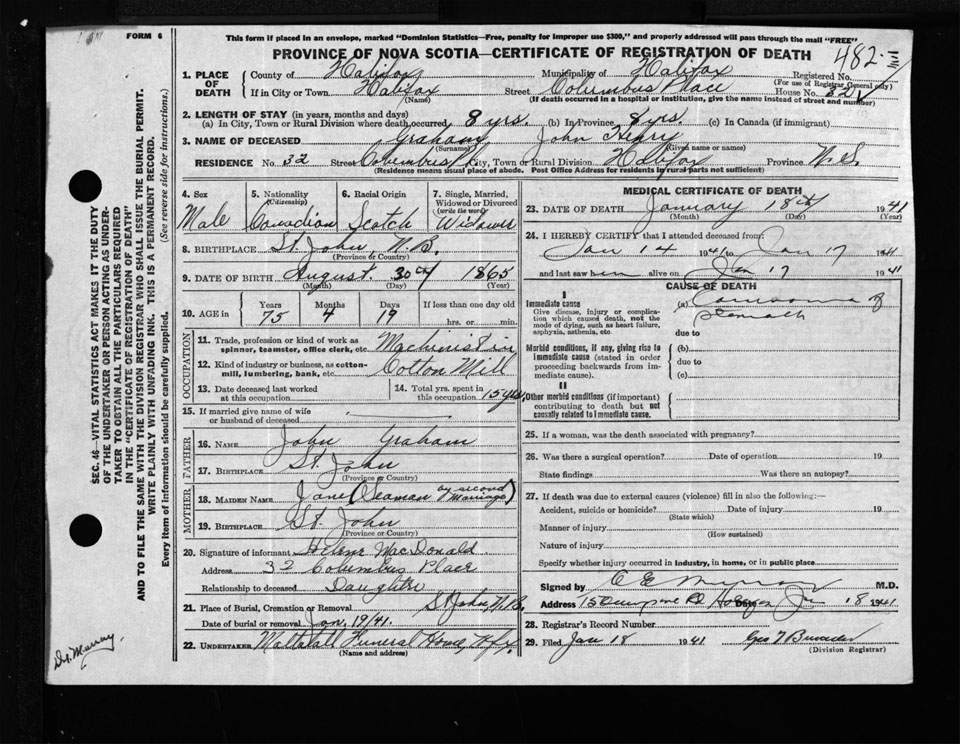 FORM 6
This form if placed in an envelope, marked "Dominion Statistics—Free, penalty for improper use $300," and properly addressed will pass through the mail "FREE"
PROVINCE OF NOVA SCOTIA—CERTIFICATE OF REGISTRATION OF DEATH
482
1. PLACE OF DEATH
County of Halifax Municipality of Halifax Registered No.
(For use of Registrar General only)
If in City or Town Halifax Street Columbus Place House No. 32
(Name) (If death occurred in a hospital or institution, give the name instead of street and number)
2. LENGTH OF STAY (in years, months and days)
(a) In City, Town or Rural Division where death occurred 8 yrs. (b) In Province 8 yrs. (c) In Canada (if immigrant)
3. NAME OF DECEASED Graham John Henry
(Surname) (Given name or names)
RESIDENCE No. 32 Street Columbus Pl. City, Town or Rural Division Halifax Province N.S.
(Residence means usual place of abode. Post Office Address for residents in rural parts not sufficient)
4. Sex Male
5. Nationality (Citizenship) Canadian
6. Racial Origin Scotch
7. Single, Married, Widowed or Divorced (write the word) Widower
8. BIRTHPLACE St. John N.B.
(Province or Country)
9. DATE OF BIRTH August 30th 1865
(Month) (Day) (Year)
10. AGE in Years 75 Months 4 Days 19 If less than one day old hrs. or min.
OCCUPATION
11. Trade, profession or kind of work as spinner, teamster, office clerk, etc. Machinist in
12. Kind of industry or business, as cotton-mill, lumbering, bank, etc. Cotton Mill
13. Date deceased last worked at this occupation
14. Total yrs. spent in this occupation 15 yrs.
15. If married give name of wife or husband of deceased
FATHER
16. NAME John Graham
17. BIRTHPLACE St. John
(Province or Country)
MOTHER
18. MAIDEN NAME Jane (Seaman by second Marriage)
19. BIRTHPLACE St. John
(Province or Country)
20. Signature of informant MacDonald
Address 32 Columbus Place
Relationship to deceased Daughter
21. Place of Burial, Cremation or Removal St. John, N.B.
Date of burial or removal Jan. 19/41.
22. UNDERTAKER Funeral Home, Hfx.
(Name and address)
MEDICAL CERTIFICATE OF DEATH
23. DATE OF DEATH January 18th 1941
(Month) (Day) (Year)
24. I HEREBY CERTIFY that I attended deceased from:
Jan 14 1941 to Jan 17 1941
and last saw him alive on Jan 17 1941
CAUSE OF DEATH
I
Immediate cause
Give disease, injury or complication which caused death, not the mode of dying, such as heart failure, asphyxia, asthenia, etc.
(a) Carcinoma of Stomach
due to
Morbid conditions, if any, giving rise to immediate cause (stated in order proceeding backwards from immediate cause).
(b)
due to
(c)
II
Other morbid conditions (if important) contributing to death but not causally related to immediate cause.
25. If a woman, was the death associated with pregnancy?
26. Was there a surgical operation? Date of operation 19
State findings Was there an autopsy?
27. If death was due to external causes (violence) fill in also the following:—
Accident, suicide or homicide? Date of injury 19
(State which)
Manner of injury
(How sustained)
Nature of injury
Specify whether injury occurred in industry, in home, or in public place
Signed by M.D.
Address Date Jan 18 1941
28. Registrar's Record Number
29. Filed Jan 18 1941
(Division Registrar)
SEC. 46—VITAL STATISTICS ACT MAKES IT THE DUTY
OF THE UNDERTAKER OR PERSON ACTING AS UNDER-
TAKER TO OBTAIN ALL THE PARTICULARS REQUIRED
IN THE "CERTIFICATE OF REGISTRATION OF DEATH"
AND TO FILE THE SAME WITH THE DIVISION REGISTRAR WHO SHALL ISSUE THE BURIAL PERMIT.
WRITE PLAINLY WITH UNFADING INK. THIS IS A PERMANENT RECORD.
Every item of information should be carefully supplied. (See reverse side for instructions.)
Dr. Murray.